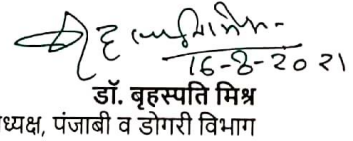 16-8-2021
डॉ. बृहस्पति मिश्र
ध्यक्ष, पंजाबी व डोगरी विभाग